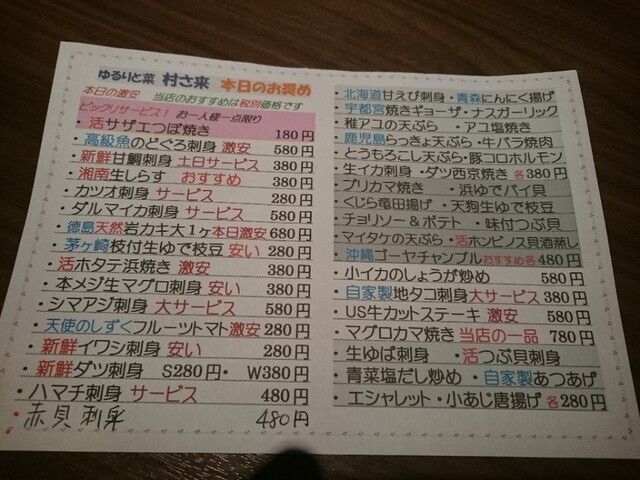 ゆるりと菜 村さ来 本日のお奨め
本日の激安 当店のおすすめは税別価格です
ビックリサービス! お一人様一点限り
・活サザエつぼ焼き 180円
・高級魚のどぐろ刺身 激安 580円
・新鮮甘鯛刺身 土日サービス 380円
・湘南生しらす おすすめ 380円
・カツオ刺身 サービス 280円
・ダルマイカ刺身 サービス 580円
・徳島天然岩カキ大1ヶ本日激安 680円
・茅ヶ崎枝付生ゆで枝豆 安い 280円
・活ホタテ浜焼き 激安 380円
・本メジ生マグロ刺身 安い 380円
・シマアジ刺身 大サービス 580円
・天使のしずくフルーツトマト激安 280円
・新鮮イワシ刺身 安い 280円
・新鮮ダツ刺身 S280円・ W380円
・ハマチ刺身 サービス 480円
・赤貝刺身 480円
・北海道甘えび刺身・青森にんにく揚げ
・宇都宮焼きギョーザ・ナスガーリック
・稚アコの天ぷら ・アコ塩焼き
・鹿児島らっきょ天ぷら・牛バラ焼肉
・とうもろこし天ぷら・豚コロホルモン
・生イカ刺身・ダツ西京焼き 各380円
・ブリカマ焼き ・浜ゆでバイ貝
・くじら竜田揚げ ・天狗生ゆで枝豆
・チョリソー&ポテト ・味付つぶ貝
・マイタケの天ぷら・活ホンビノス貝酒蒸し
・沖縄ゴーヤチャンプルおすすめ各480円
・小イカのしょうが炒め 580円
・自家製地タコ刺身大サービス 380円
・US牛カットステーキ 激安 580円
・マグロカマ焼き当店の一品 780円
・生ゆば刺身 ・活つぶ貝刺身
・青菜塩だし炒め ・自家製あつあげ
・エシャレット・小あじ唐揚げ 各280円